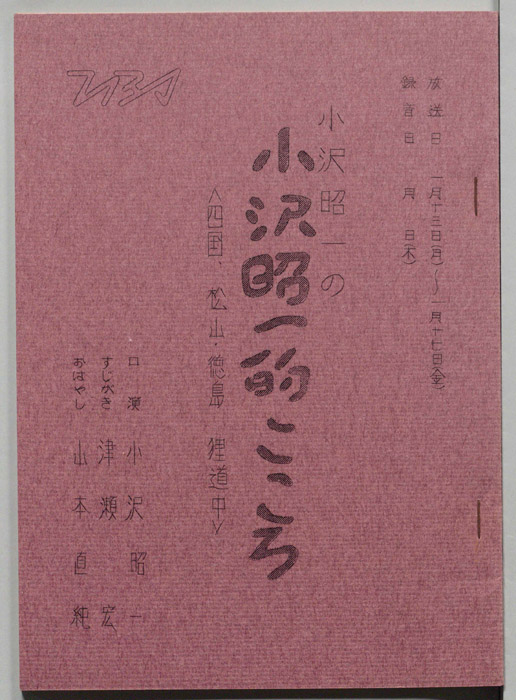 放送日 一月十三日(月)〜一月十七日(金)
録音日 月 日(木)
小沢昭一の
小沢昭一的こころ
〈四国、松山・徳島 狸道中〉
口演 小沢昭一
すじがき 津瀬宏
おはやし 山本直純
TBS